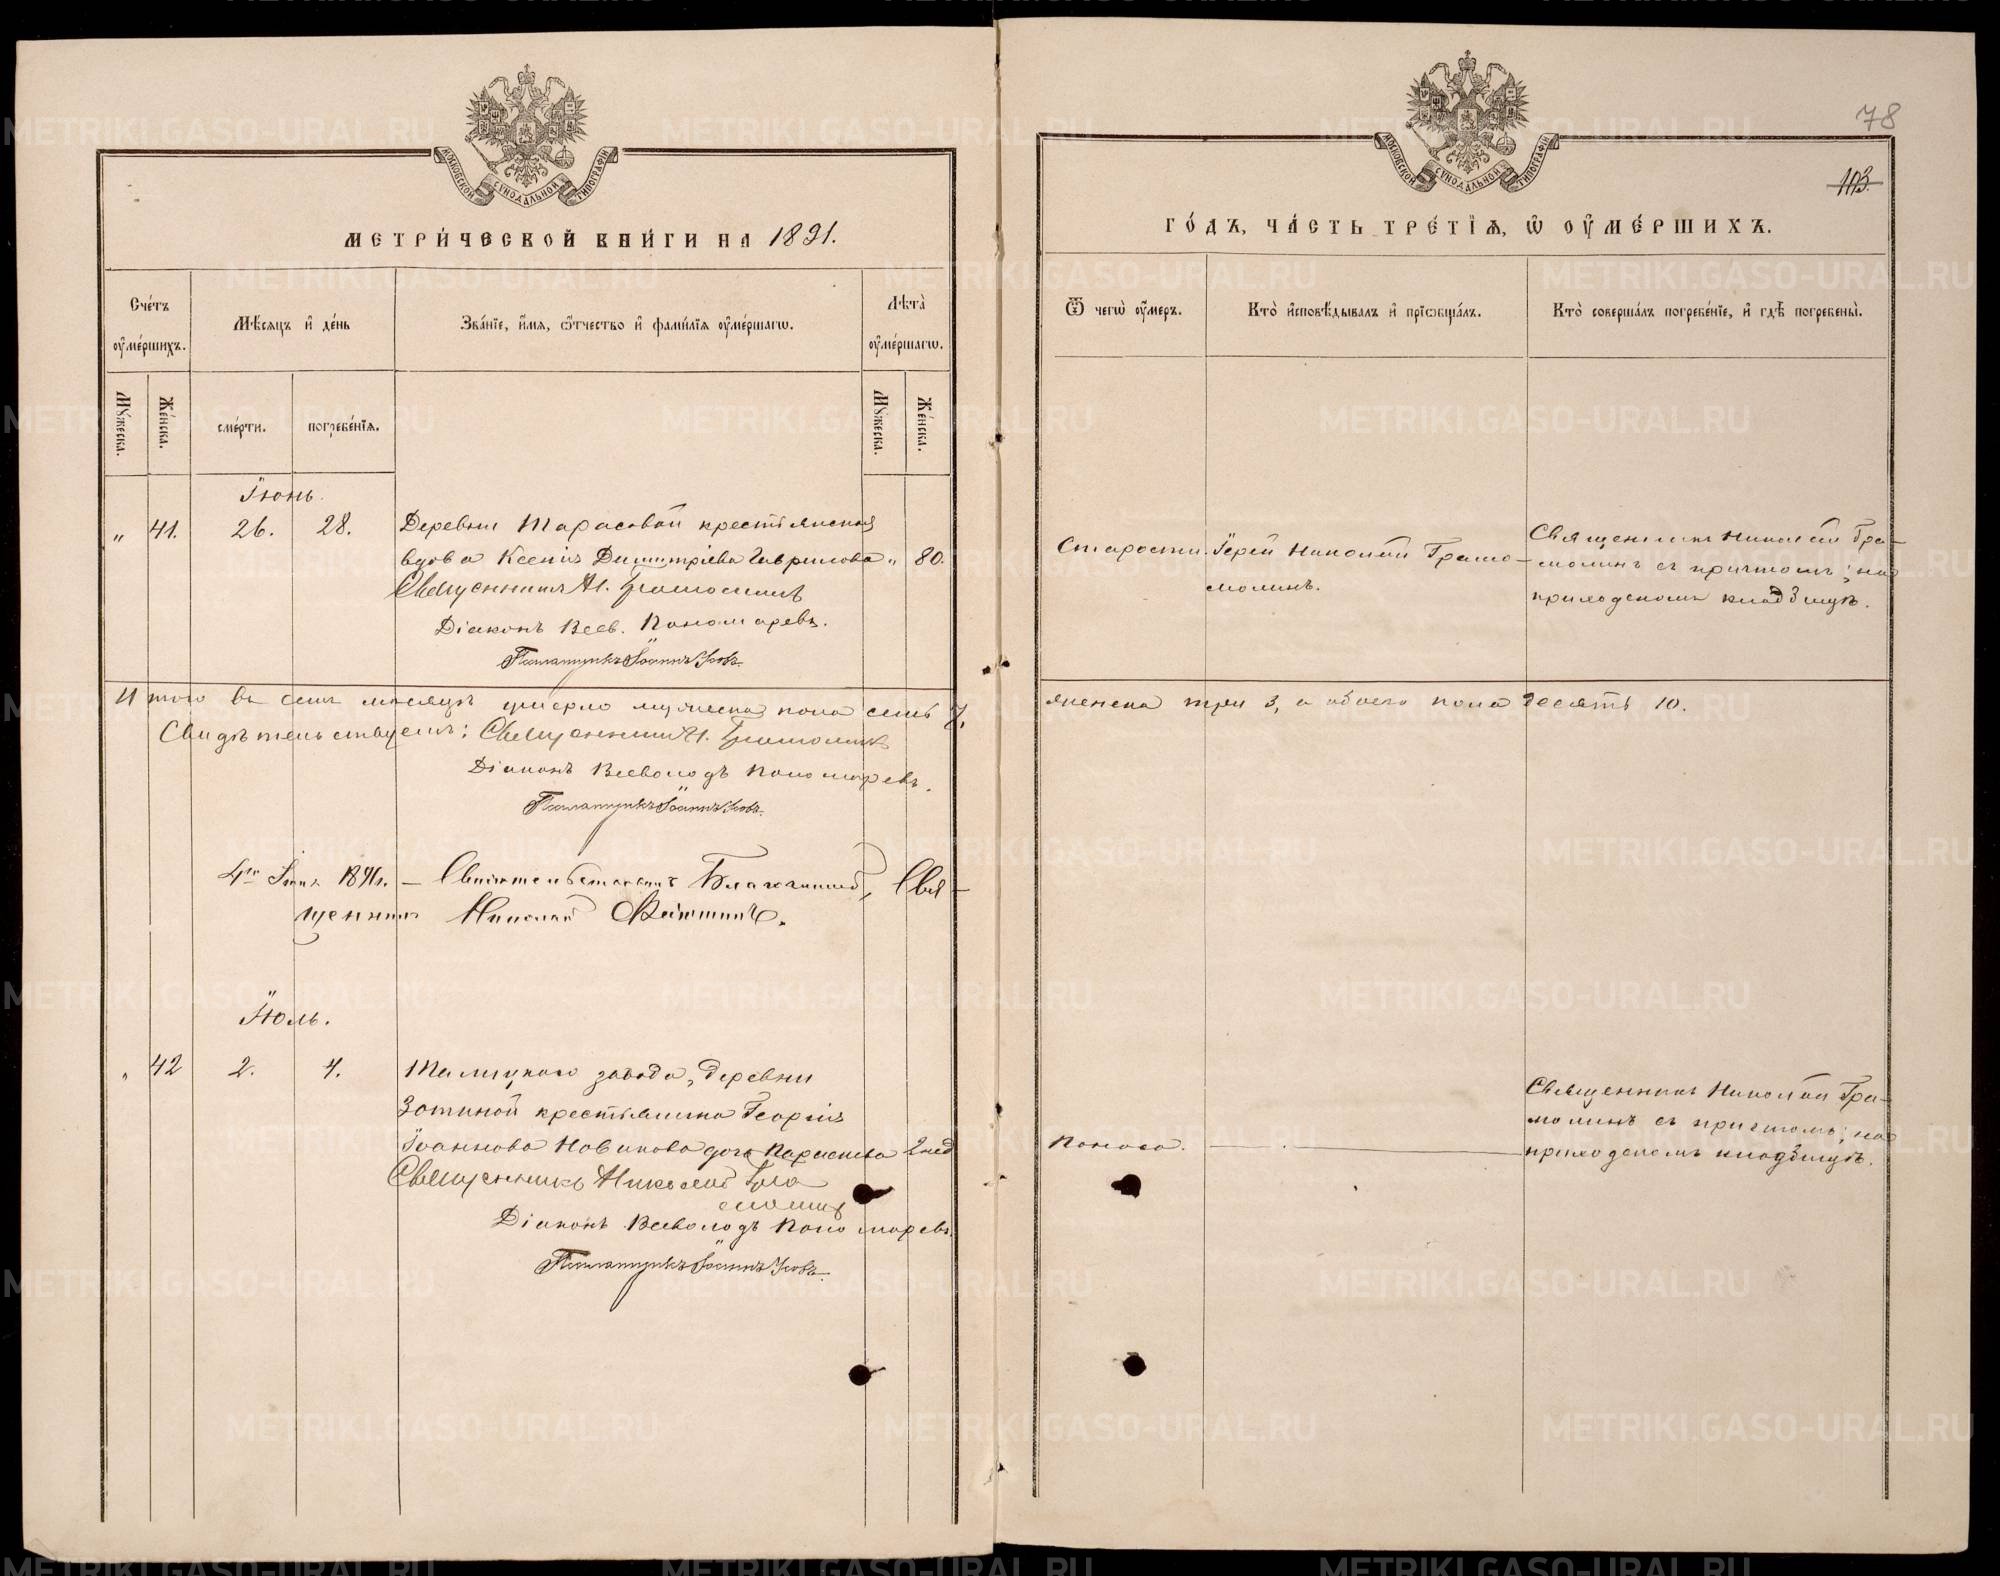 МОСКОВСКОЙ СѴНОДАЛЬНОЙ ТИПОГРАФІИ
МЕТРИ́ЧЕСКОЙ КНИ́ГИ НА 1891.
Сче́тъ оу҆ме́ршихъ.
Мѣ́сѧцъ и҆ де́нь
Зва́нїе, и҆́мѧ, ѻ҆́тчество и҆ фами́лїѧ оу҆ме́ршагѡ.
Лѣ́та оу҆ме́ршагѡ.
Мꙋ́жеска.
Же́нска.
сме́рти.
погребе́нїѧ.
Мꙋ́жеска.
Же́нска.
Іюнь.
„ 41. 26. 28. Деревни Тарасовой крестьянская
вдова Ксенія Димитріева Гаврилова „ 80.
Священникъ Н. Грамолинъ
Діаконъ Всев. Пономаревъ.
Псаломщикъ Іоаннъ Усовъ.
Итого въ семъ мѣсяцѣ умерло мужеска пола семь 7,
Свидѣтельствуемъ: Священникъ Н. Грамолинъ
Діаконъ Всеволодъ Пономаревъ.
Псаломщикъ Іоаннъ Усовъ.
4го 1891г. – Благочинный, Свя-
щенникъ Николай
Іюль.
„ 42 2. 4. Талицкаго завода, деревни
Зотиной крестьянина Георгія
Іоаннова Новикова дочь Параскева 2 нед
Священникъ Николай Гра
молинъ
Діаконъ Всеволодъ Пономаревъ.
Псаломщикъ Іоаннъ Усовъ.
78
103.
МОСКОВСКОЙ СѴНОДАЛЬНОЙ ТИПОГРАФІИ
ГО́ДЪ, ЧА́СТЬ ТРЕ́ТЇѦ, Ѡ҆ ОУ҆МЕ́РШИХЪ.
Ѿ чегѡ̀ оу҆́меръ.
Кто̀ и҆сповѣ́дывалъ и҆ прїѡбща́лъ.
Кто̀ соверша́лъ погребе́нїе, и҆ гдѣ̀ погребены̀.
Старости.
Іерей Николай Грамо-
молинъ.
Священникъ Николай Гра-
молинъ съ причтомъ; на
приходскомъ кладбищѣ.
женска три 3, а обоего пола десять 10.
Поноса.
Священникъ Николай Гра-
молинъ съ причтомъ; на
приходскомъ кладбищѣ.
METRIKI.GASO-URAL.RU